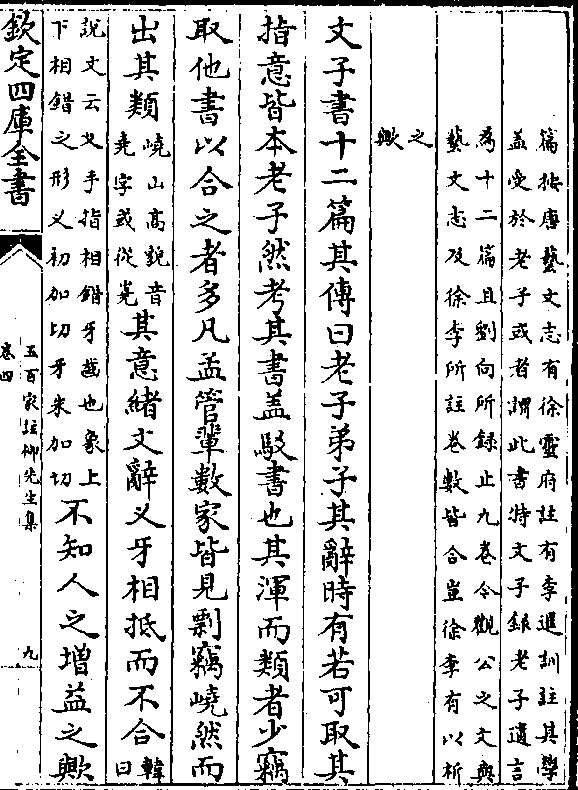 篇按唐藝文志有徐靈府註有李暹訓註其學
蓋受於老子或者謂此書特文子錄老子遺言
為十二篇且劉向所錄止九卷今觀公之文與
藝文志及徐李所註卷數皆合豈徐李有以析
之
歟
文子書十二篇其傳曰老子弟子其辭時有若可取其
指意皆本老子然考其書蓋駁書也其渾而類者少竊
取他書以合之者多凡孟管輩數家皆見剽竊嶢然而
出其類
嶢山高貌音
堯字或從嶤
其意緒文辭义牙相抵而不合
韓
曰
說文云义手指相錯牙齒也象上
下相錯之形义初加切牙米加切
不知人之增益之歟
欽定四庫全書
五百家註柳先生集
卷四
九